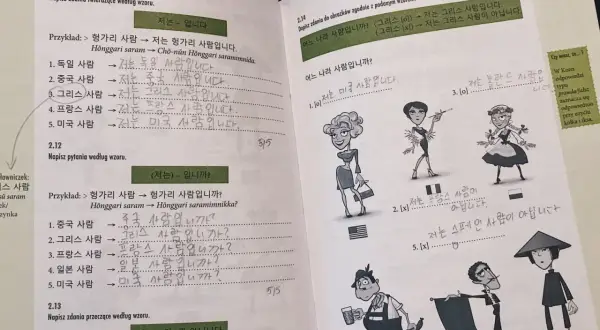 저는 – 입니다
Przykład: > 헝가리 사람 → 저는 헝가리 사람입니다.
Hŏnggari saram → Chŏ-nŭn Hŏnggari saramimnida.
1. 독일 사람 → 저는 독일 사람입니다.
2. 중국 사람 → 저는 중국 사람입니다.
3. 그리스 사람 → 저는 그리스 사람입니다.
4. 프랑스 사람 → 저는 프랑스 사람입니다.
5. 미국 사람 → 저는 미국 사람입니다.
5/5
2.12
Napisz pytania według wzoru.
(저는) – 입니까?
Przykład: > 헝가리 사람 → 헝가리 사람입니까?
Hŏnggari saram → Hŏnggari saramimnikka?
1. 중국 사람 → 중국 사람입니까?
2. 그리스 사람 → 그리스 사람입니까?
3. 프랑스 사람 → 프랑스 사람입니까?
4. 일본 사람 → 일본 사람입니까?
5. 미국 사람 → 미국 사람입니까?
5/5
2.13
Napisz zdania przeczące według wzoru.
łowniczek:
스 사람
saram
2.14
Napisz zdania do obrazków zgodnie z podanym
어느 나라 사람입니까? (그리스 [o]) → 저는 그리스 사람입니다.
(그리스 [x]) → 저는 그리스 사람이 아닙니다.
어느 나라 사람입니까?
1. [o] 저는 미국 사람입니다.
3. [o] 저는 폴란드 사람입니다.
2. [x] 저는 프랑스 사람이 아닙니다.
5. [x] 저는 스페인 사람이 아닙니다
Czy wiesz, że...?
W Korei